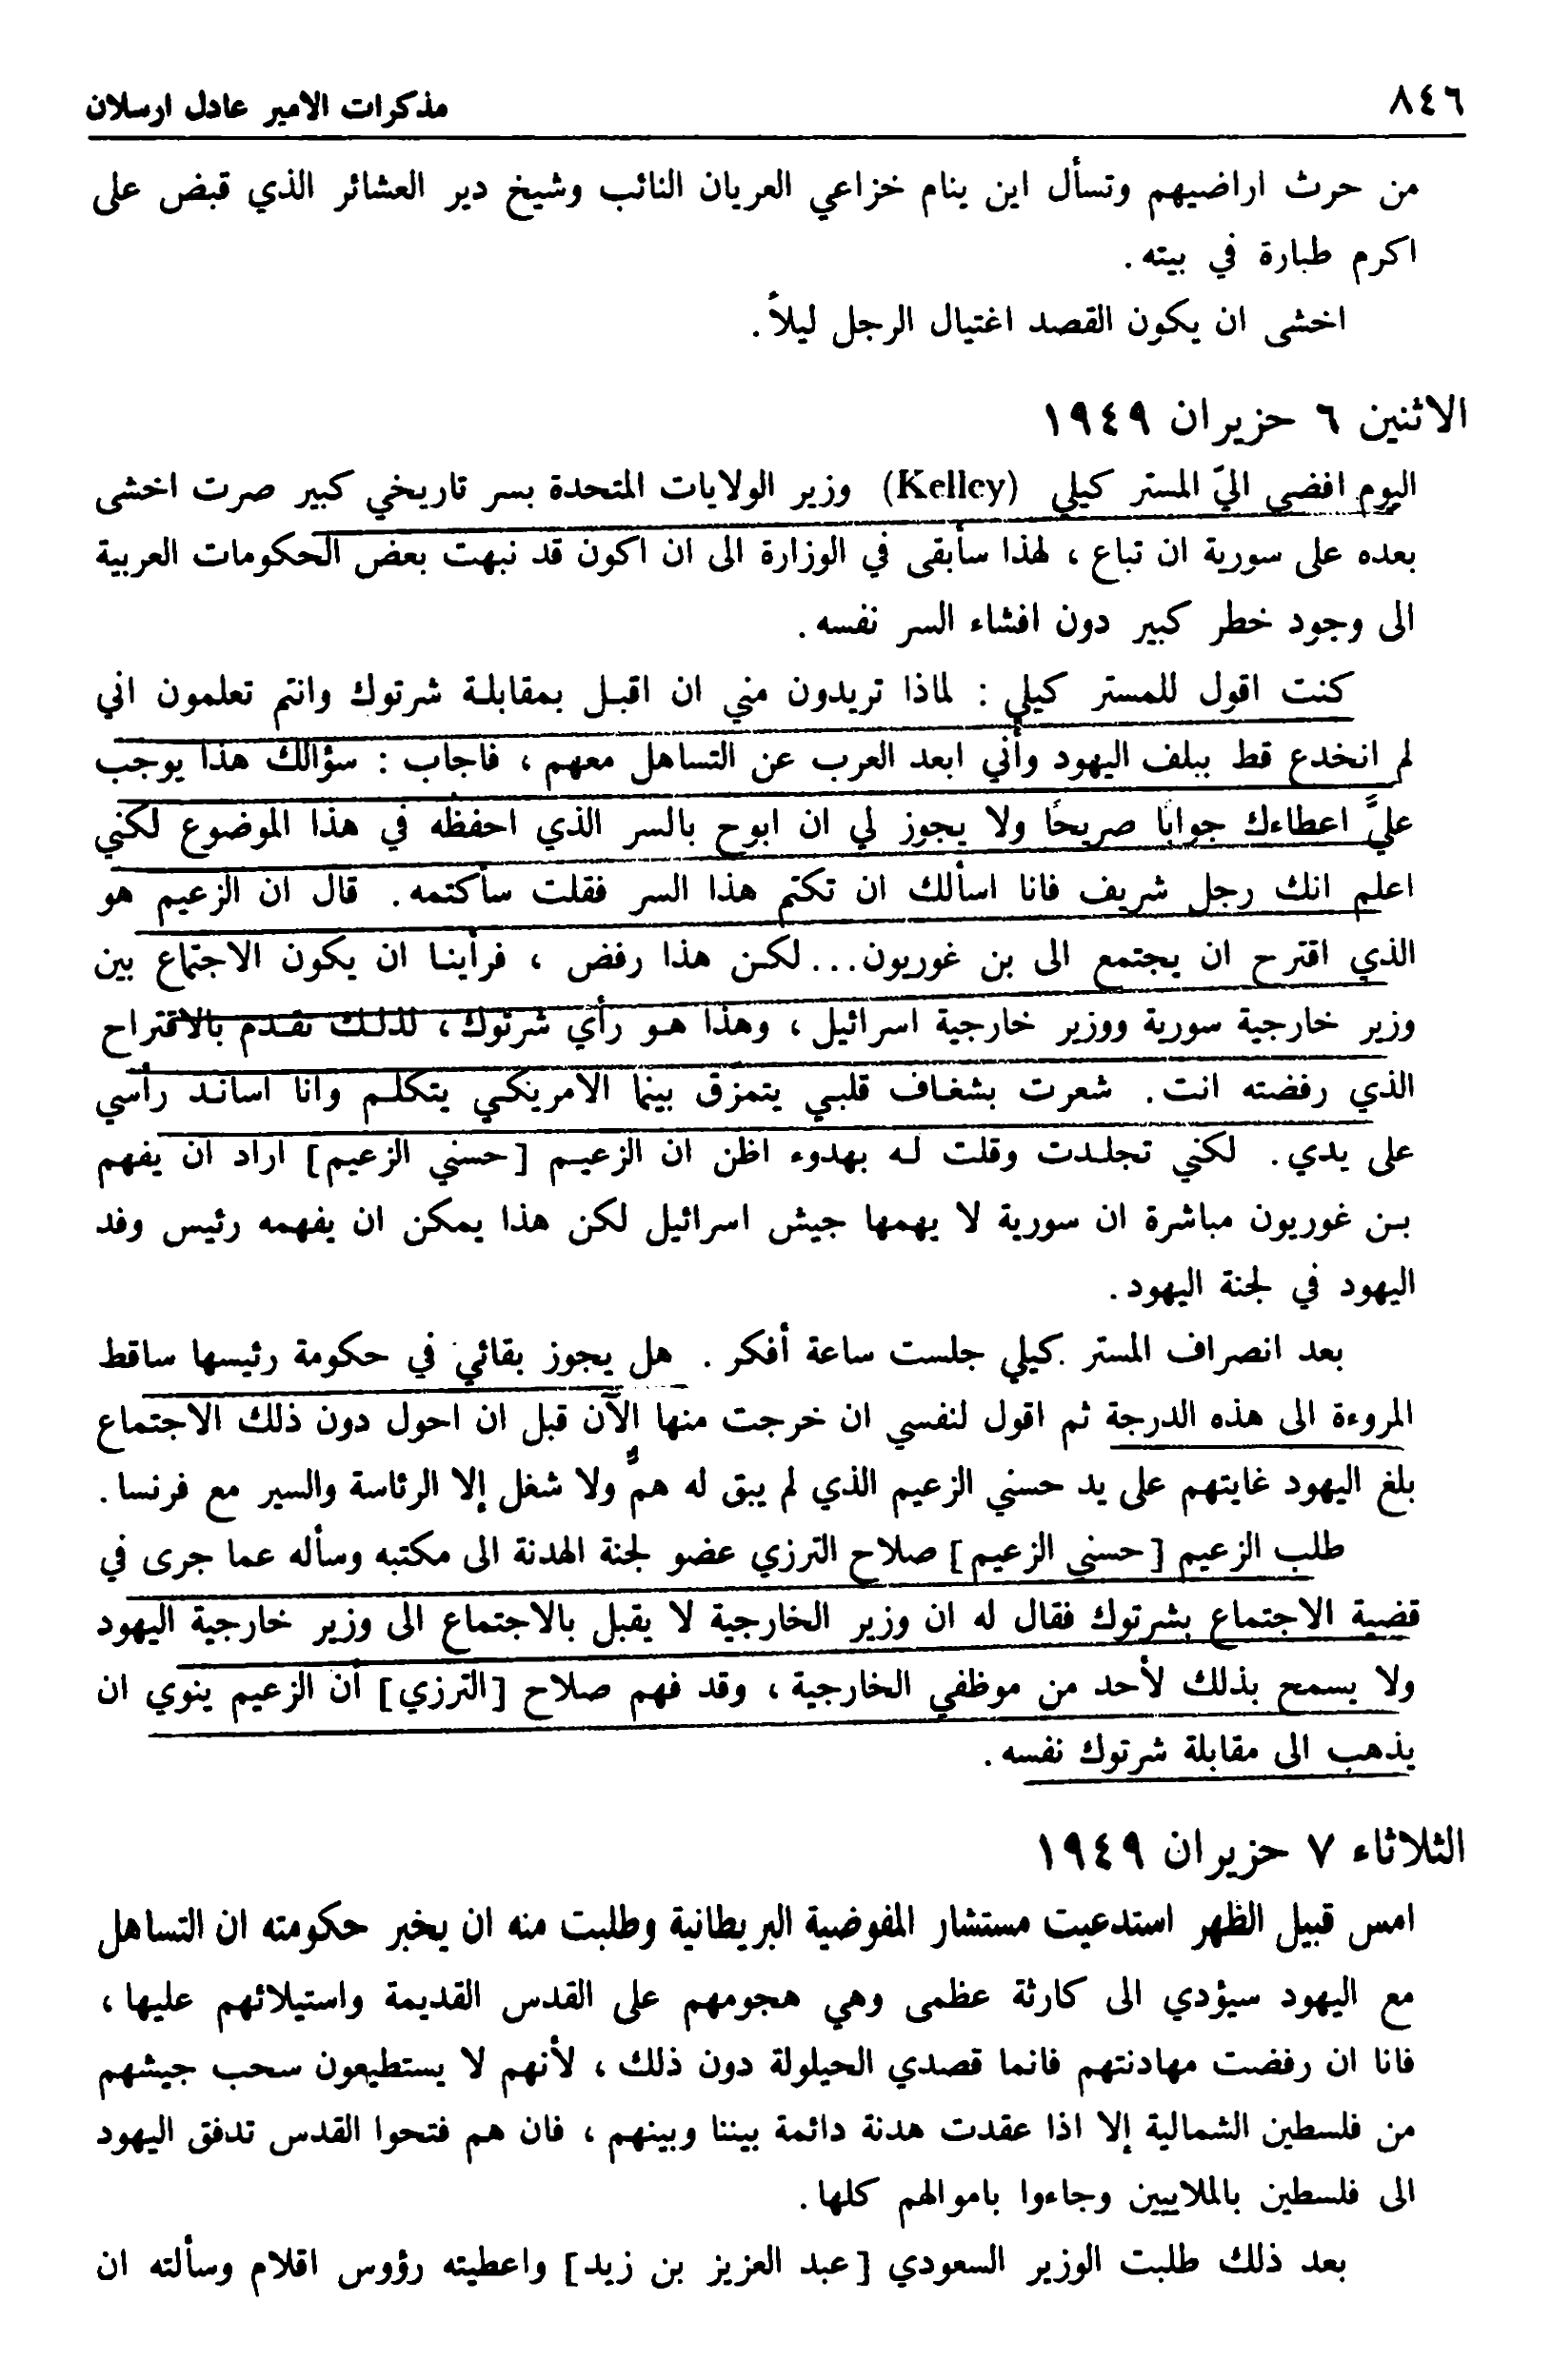 ٨٤٦
مذكرات الامير عادل ارسلان
من حرث اراضيهم وتسأل اين ينام خزاعي العريان النائب وشيخ دير العشائر الذي قبض على
اكرم طبارة في بيته .
اخشى ان يكون القصد اغتيال الرجل ليلاً .
الاثنين ٦ حزيران ١٩٤٩
اليوم افضى اليّ المستر كيلي (Kelley) وزير الولايات المتحدة بسر تاريخي كبير صرت اخشى
بعده على سورية ان تباع ، لهذا سأبقى في الوزارة الى ان اكون قد نبهت بعض الحكومات العربية
الى وجود خطر كبير دون افشاء السر نفسه .
كنت اقول للمستر كيلي : لماذا تريدون مني ان اقبل بمقابلة شرتوك وانتم تعلمون اني
لم انخدع قط ببلف اليهود وأني ابعد العرب عن التساهل معهم ، فاجاب : سؤالك هذا يوجب
عليَّ اعطاءك جوابًا صريحًا ولا يجوز لي ان ابوح بالسر الذي احفظه في هذا الموضوع لكني
اعلم انك رجل شريف فانا اسألك ان تكتم هذا السر فقلت سأكتمه. قال ان الزعيم هو
الذي اقترح ان يجتمع الى بن غوريون... لكن هذا رفض ، فرأينا ان يكون الاجتماع بين
وزير خارجية سورية ووزير خارجية اسرائيل ، وهذا هو رأي شرتوك ، لذلك نقدم بالاقتراح
الذي رفضته انت. شعرت بشغاف قلبي يتمزق بينما الامريكي يتكلم وانا اساند رأسي
على يدي. لكني تجلدت وقلت له بهدوء اظن ان الزعيم [حسني الزعيم] اراد ان يفهم
بن غوريون مباشرة ان سورية لا يهمها جيش اسرائيل لكن هذا يمكن ان يفهمه رئيس وفد
اليهود في لجنة اليهود.
بعد انصراف المستر كيلي جلست ساعة أفكر . هل يجوز بقائي في حكومة رئيسها ساقط
المروءة الى هذه الدرجة ثم اقول لنفسي ان خرجت منها الآن قبل ان احول دون ذلك الاجتماع
بلغ اليهود غايتهم على يد حسني الزعيم الذي لم يبق له همٌّ ولا شغل إلا الرئاسة والسير مع فرنسا .
طلب الزعيم [حسني الزعيم] صلاح الترزي عضو لجنة الهدنة الى مكتبه وسأله عما جرى في
قضية الاجتماع بشرتوك فقال له ان وزير الخارجية لا يقبل بالاجتماع الى وزير خارجية اليهود
ولا يسمح بذلك لأحد من موظفي الخارجية ، وقد فهم صلاح [الترزي] أن الزعيم ينوي ان
يذهب الى مقابلة شرتوك نفسه .
الثلاثاء ٧ حزيران ١٩٤٩
امس قبيل الظهر استدعيت مستشار المفوضية البريطانية وطلبت منه ان يخبر حكومته ان التساهل
مع اليهود سيؤدي الى كارثة عظمى وهي هجومهم على القدس القديمة واستيلائهم عليها ،
فانا ان رفضت مهادنتهم فانما قصدي الحيلولة دون ذلك ، لأنهم لا يستطيعون سحب جيشهم
من فلسطين الشمالية إلا اذا عقدت هدنة دائمة بيننا وبينهم ، فان هم فتحوا القدس تدفق اليهود
الى فلسطين بالملايين وجاءوا باموالهم كلها .
بعد ذلك طلبت الوزير السعودي [عبد العزيز بن زيد] واعطيته رؤوس اقلام وسألته ان